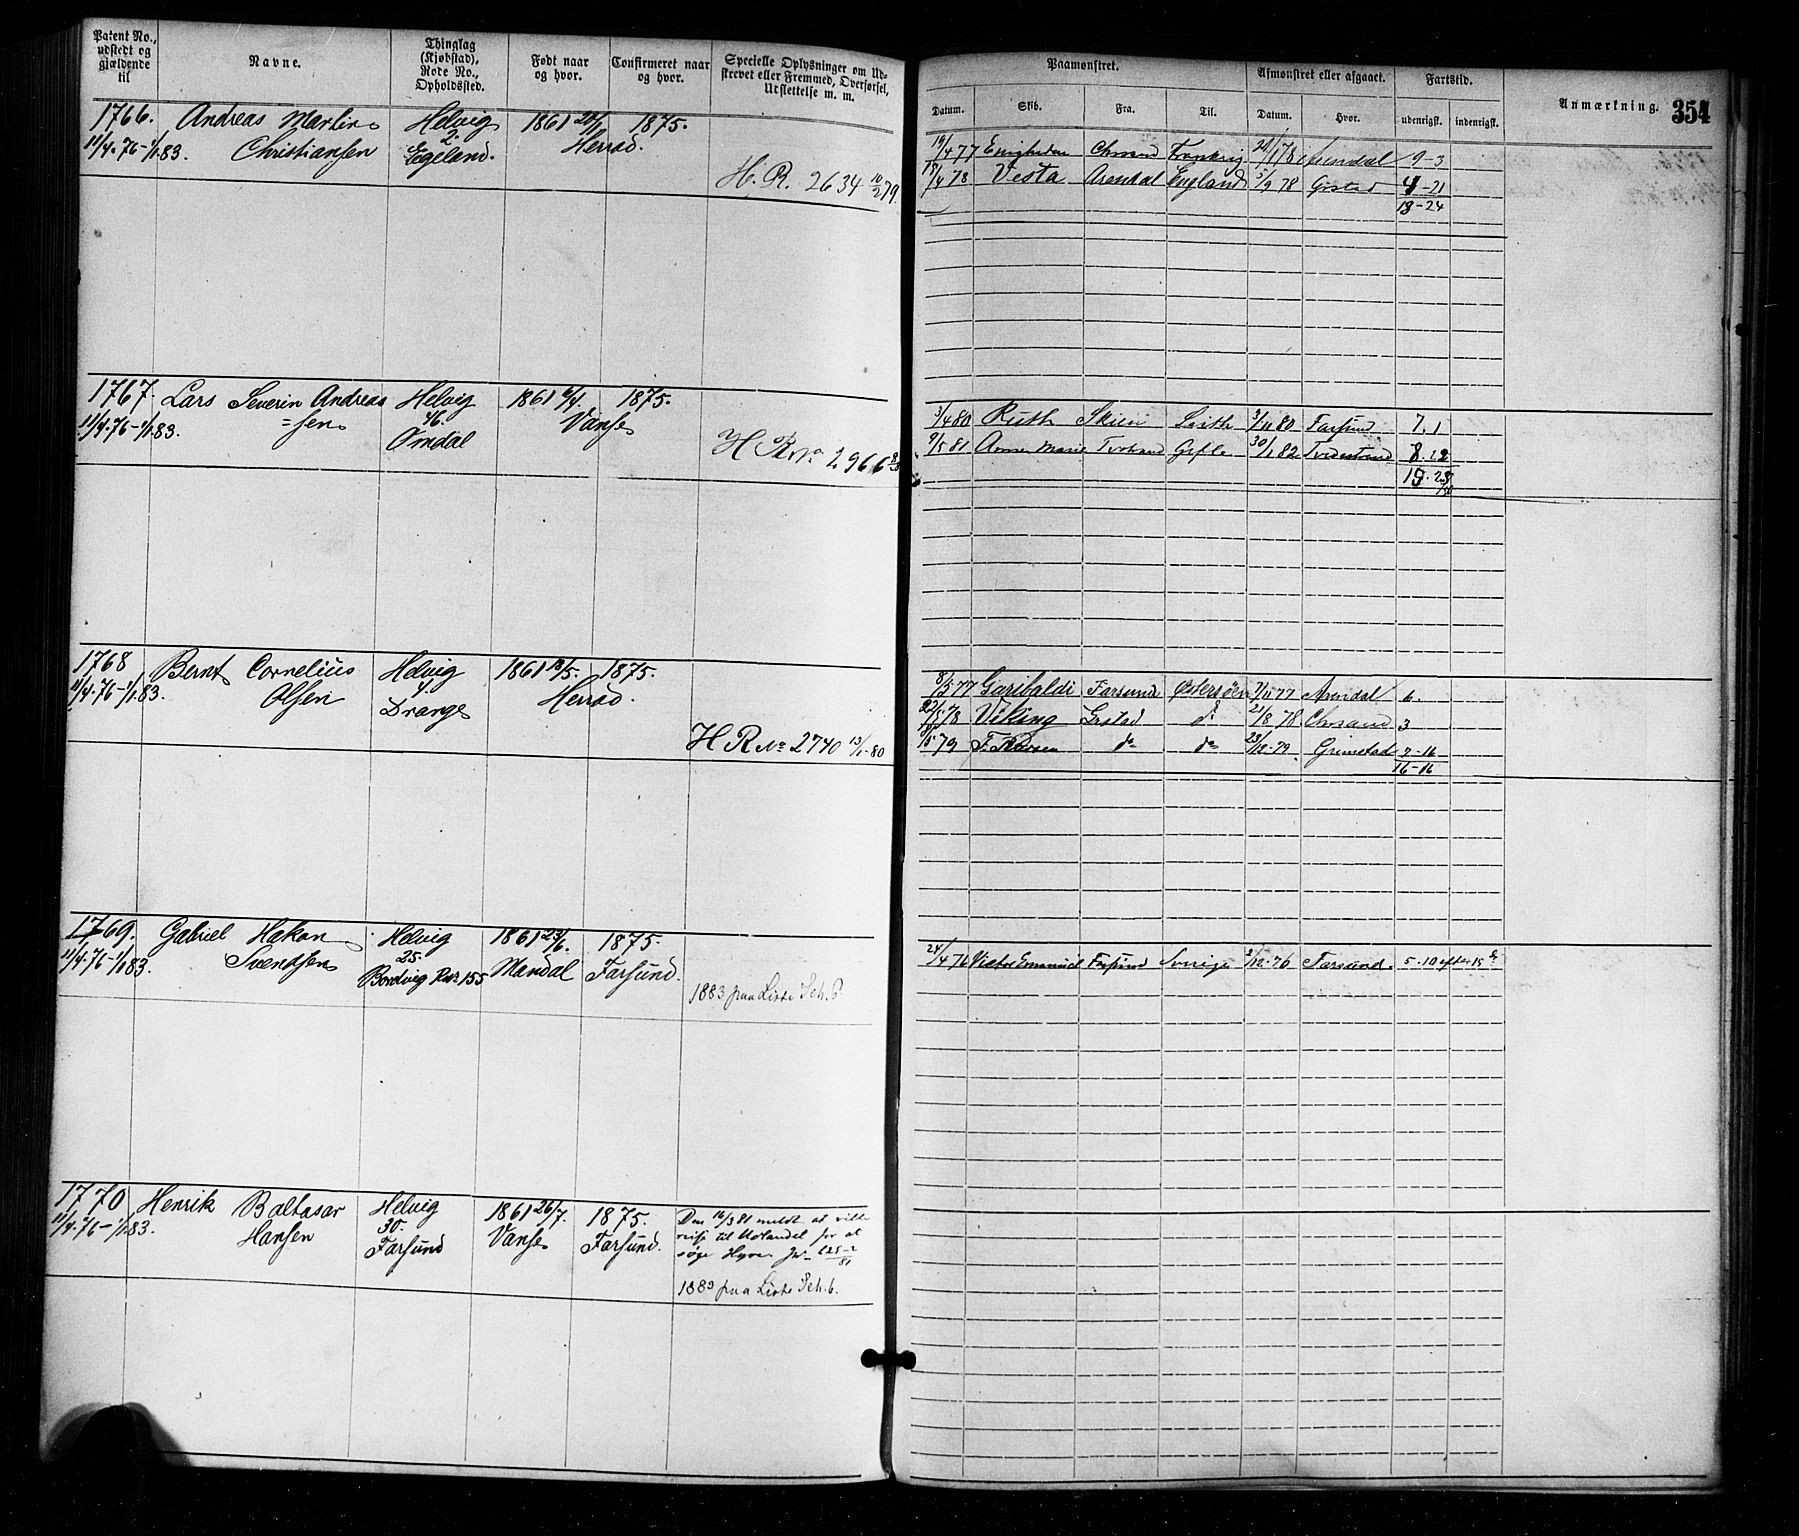 Patent No., udstedt og gjældende til
Navne.
Thinglag (Kjøbstad), Rode No., Opholdssted.
Født naar og hvor.
Confirmeret naar og hvor.
Specielle Oplysninger om Udstrevet eller Fremmed, Overførsel, Udslettelse m. m.
Paamønstret.
Datum.
Skib.
Fra.
Til.
Afmønstret eller afgaaet.
Datum.
Hvor.
Fartstid.
udenrigsk.
indenrigsk.
Anmærkning.
354
1766. Andreas Martin Helvig 1861 1875.
11/4.76-1/1.83. Christiansen 2. Herrad.
Egeland.
H. R. 2634 10/2 79.
19/4 77 Enigheden Chrsand Frankrig Arendal 9-3
/4 78 Vesta Arendal England 5/9 78 Grstad 4-21
13-24
1767. Lars Severin Andreas Helvig 1861 6/4 1875.
11/4.76-1/1.83. =sen 46. Vanse
Ørndal
H R No 2966
3/4 80 Ruth Skien Leith 3/11 80 Farsund 7.1
9/5 81 Anne Marie Tvstrand Gefle 30/1 82 Tvedestrand 8.22
15.23
1768 Bernt Cornelius Helvig 1861 18/5. 1875.
11/4.76-1/1.83. Olsen 4. Herrad.
Drange
H R No 2740 13/1-80
8/5 77 Garibaldi Farsund Østersøen 7/11 77 Arendal 6.
22/5 78 Viking Grstad do 21/8 78 Chrsand 3
/5 79 do do 23/12-79 Grimstad 7-16
16-16
1769. Gabriel Hakon Helvig 1861 23/6. 1875.
11/4.76-1/1.83. Svendsen 25. Mandal Farsund.
Bordvig 155
1883 paa Liste Sch. 6.
24/4 76 Victor Emanuel Farsund Sverige 2/12-76 Farsund. 5.10 efter 15
1770 Henrik Baltasar Helvig 1861 26/7. 1875.
11/4.76-1/1.83. Hansen 30. Vanse Farsund.
Farsund
Den 16/3 81 meldt at ville
reise til Udlandet for at
søge Hyre
1883 paa Liste Sch. 6.